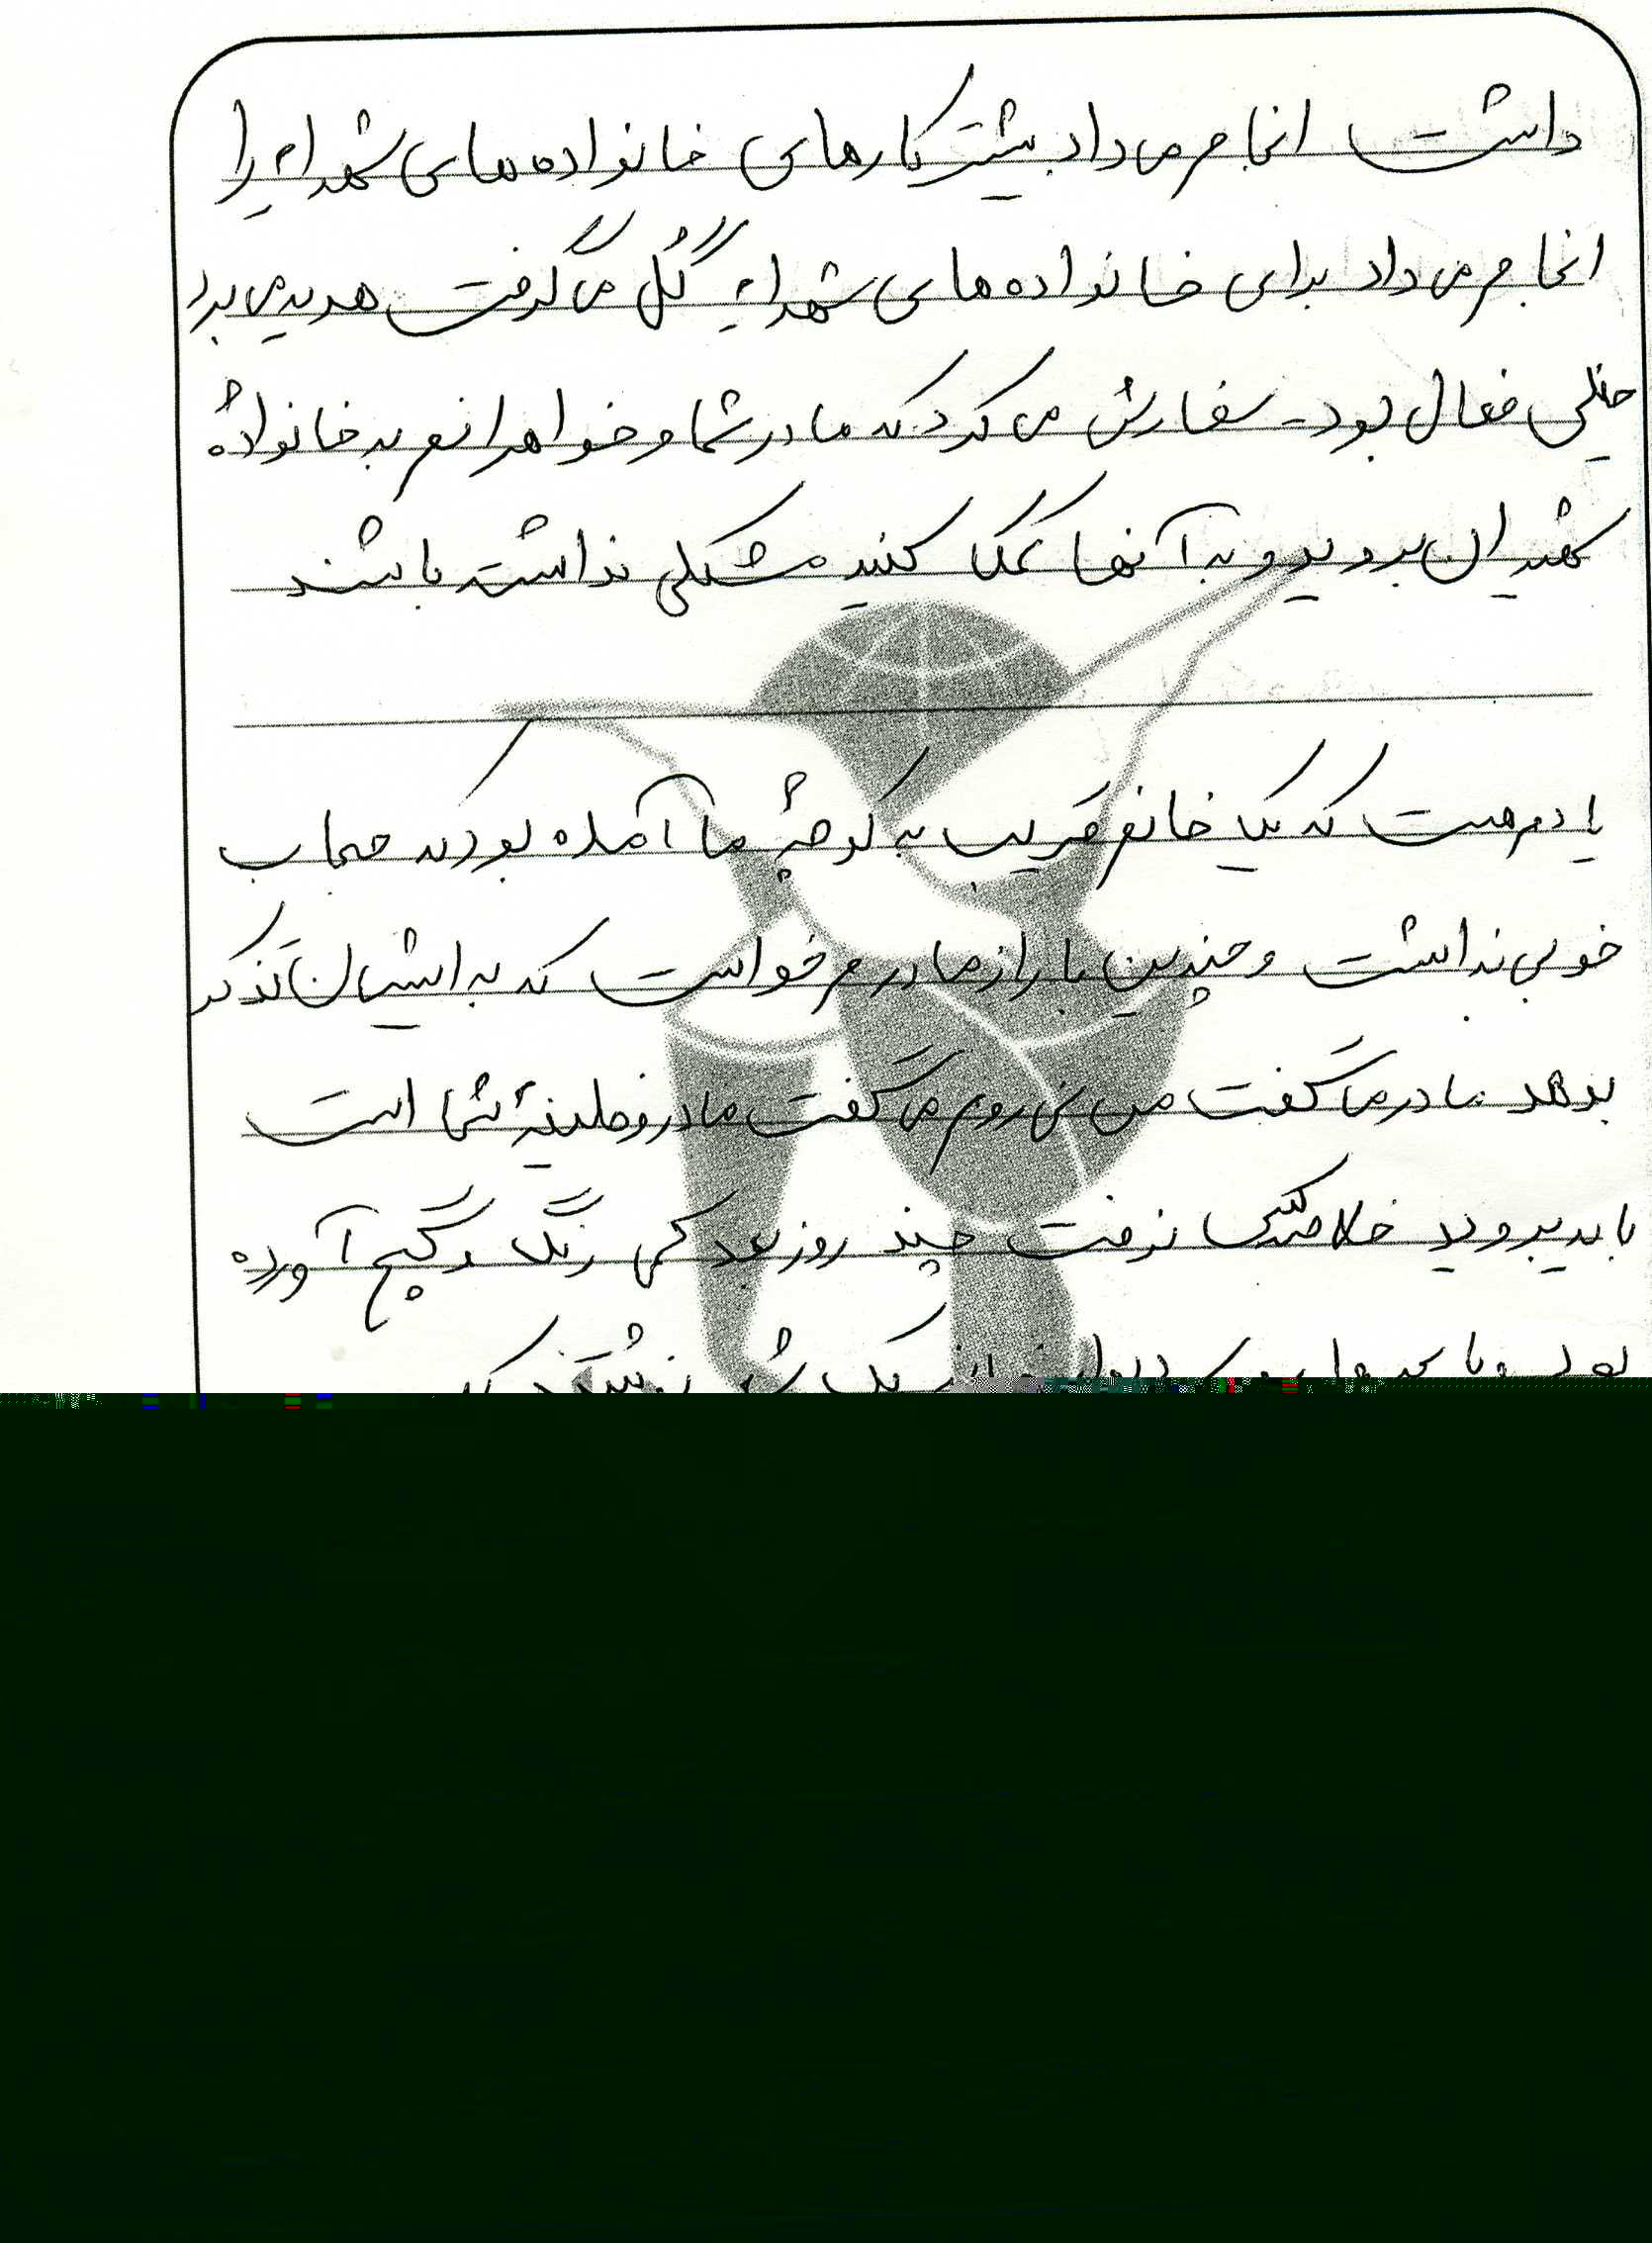 داشت انجام می داد بیشتر کارهای خانواده های شهداء را
انجام می داد برای خانواده های شهداء گُل می گرفت هدیه می برد
خیلی فعال بود - سفارش می کرد که مادر شما و خواهرانم به خانوادهٔ
شهیدان بروید و به آنها کمک کنید مشکلی نداشته باشند
یادم هست که یک خانم غریب به کوچهٔ ما آمده بود که حجاب
خوبی نداشت و چندین بار از مادرم خواست که به ایشان تذکر
بدهد مادر می گفت من نمی روم می گفت مادر وظیفهٔ شما است
باید بروید خلاصه کسی نرفت چند روز بعد کمی رنگ و گچ آورده
بود و با